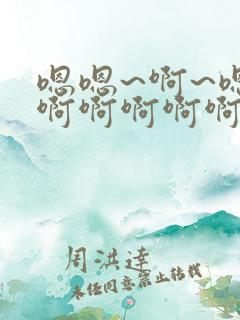 嗯嗯~啊~嗯
啊啊啊啊啊
周洪達
未经同意禁止转载